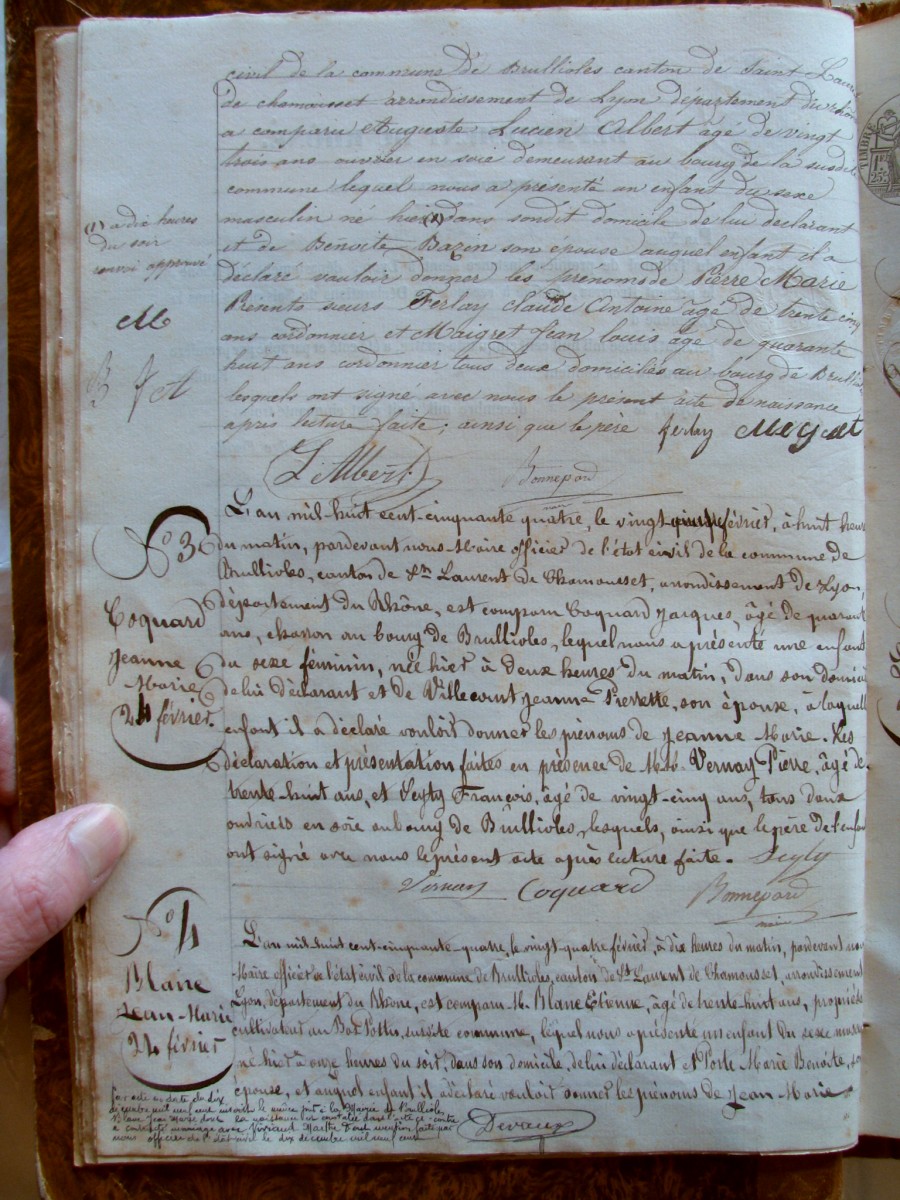 civil de la commune de Brullioles canton de Saint Laurent
de chamousset arrondissement de Lyon département du rhône
a comparu Auguste Lucien Albert âgé de vingt
trois ans ouvrier en soie demeurant au bourg de la susdite
commune lequel nous a présenté un enfant du sexe
masculin né hier (1) dans sondit domicile de lui déclarant
et de Benoite Bazin son épouse auquel enfant il a
déclaré vouloir donner les prénoms de Pierre Marie
Présents sieurs Ferlay Claude Antoine âgé de trente cinq
ans cordonnier et Maigret Jean louis âgé de quarante
huit ans cordonnier tous deux domiciliés au bourg de Brullioles
lesquels ont signé avec nous le présent acte de naissance
après lecture faite ; ainsi que le père ferlay
L Albert Bonnepard
(1) a dix heures
du soir
renvoi approuvé
M
B f A
N° 3
Coquard
Jeanne
Marie
24 février.
L'an mil-huit cent-cinquante quatre, le vingt- février, à huit heures
du matin, pardevant nous Maire officier de l'état civil de la commune de
Brullioles, canton de St Laurent de Chamousset, arrondissement de Lyon,
département du Rhône, est comparu Coquard Jacques, âgé de quarante
ans, au bourg de Brullioles, lequel nous a présenté une enfant
du sexe féminin, née hier à deux heures du matin, dans son domicile
de lui déclarant et de Villecourt Jeanne Pierrette, son épouse, à laquelle
enfant il a déclaré vouloir donner les prénoms de Jeanne Marie. Les
déclaration et présentation faites en présence de M.M. Vernay Pierre, âgé de
trente-huit ans, et Seyty François, âgé de vingt-cinq ans, tous deux
ouvriers en soie au bourg de Brullioles, lesquels, ainsi que le père de l'enfant
ont signé avec nous le présent acte après lecture faite. Seyty
Vernay Coquard Bonnepard
maire
N° 4
Blanc
Jean-Marie
24 février
L'an mil-huit cent-cinquante-quatre, le vingt-quatre février, à dix heures du matin, pardevant nous
Maire officier de l'état civil de la commune de Brullioles, canton de St Laurent de Chamousset, arrondissement
Lyon, département du Rhône, est comparu M. Blanc Etienne, âgé de trente-huit ans, propriétaire
cultivateur au susdite commune, lequel nous a présenté un enfant du sexe masculin
né hier à onze heures du soir, dans son domicile, de lui déclarant et Marie Benoite, son
épouse, et auquel enfant il a déclaré vouloir donner les prénoms de Jean-Marie
Par acte en date du dix
décembre mil neuf cent inscrit le même jour à la Mairie de Brullioles
Blanc Jean Marie dont la naissance est constatée dans l'acte ci contre
a contracté mariage avec
nous officier de l'état civil le dix décembre mil neuf cent
Devaux
TIMBRE